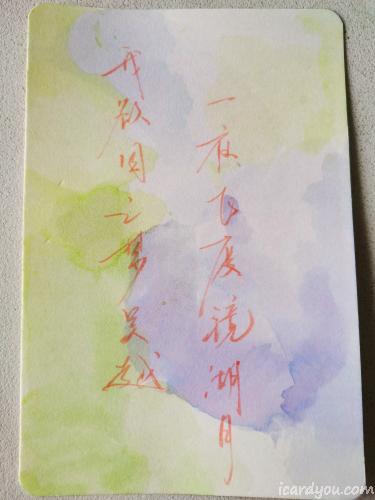 我欲因之梦吴越
一夜飞度镜湖月
icardyou.com